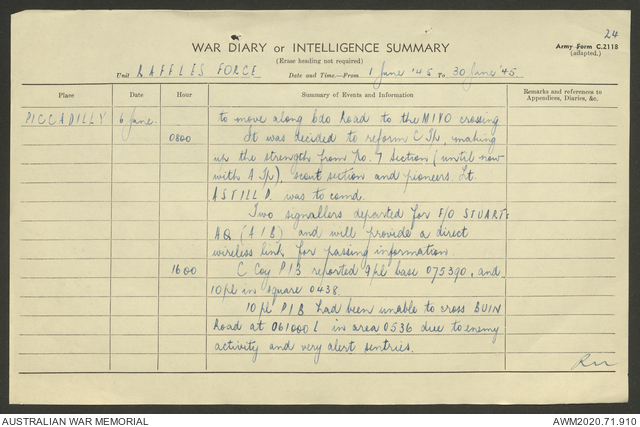 24
WAR DIARY or INTELLIGENCE SUMMARY
Army Form C.2118
(adapted.)
(Erase heading not required)
Unit RAFFLES FORCE Date and Time—From 1 June '45 To 30 June '45
Place Date Hour Summary of Events and Information Remarks and references to Appendices, Diaries, &c.
PICCADILLY 6 June. to move along bdo Road to the MIVO crossing
0800 It was decided to reform C Tp, making
up the strength from No. 7 Section (until now
with A Tp), scout section and pioneers. Lt.
ASTILL D. was to comd.
Two signallers departed for F/O STUARTs
AQ (AIB) and will provide a direct
wireless link for passing information.
1600 C Coy PIB reported 9pl base 075390, and
10pl in square 0438.
10 pl PIB had been unable to cross BUIN
Road at 061000L in area 0536 due to enemy
activity and very alert sentries.
AUSTRALIAN WAR MEMORIAL AWM2020.71.910